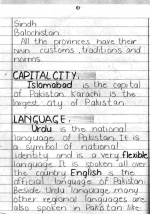 Sindh
Balochistan.
All the provinces have their
own customs, traditions and
norms.
CAPITAL CITY.
Islamabad is the capital
of Pakistan. Karachi is the
largest city of Pakistan.
LANGUAGE.
Urdu is the national
language of Pakistan. It is
a symbol of national
identity and is a very flexible
language. It is spoken all over
the country. English is the
official language of Pakistan.
Beside Urdu language many
other regional languages are
also spoken in Pakistan like